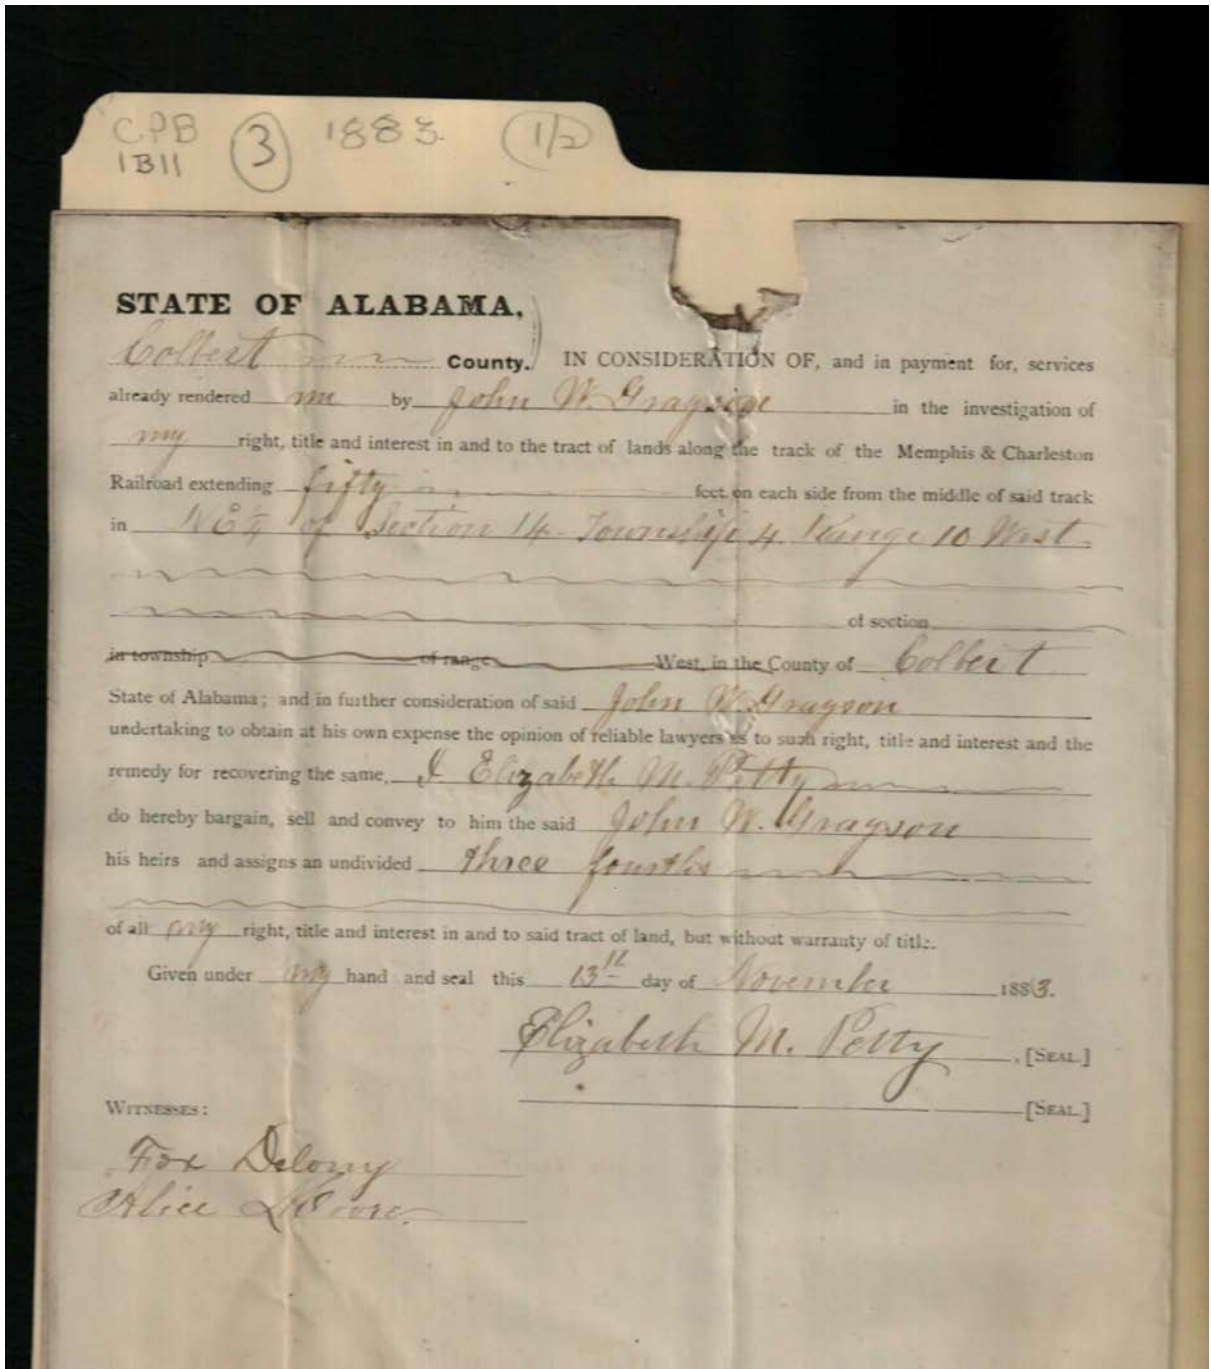 CPB
1B11
3
1883.
1/2
STATE OF ALABAMA,
Colbert County. IN CONSIDERATION OF, and in payment for, services
already rendered me by John W. Grayson in the investigation of
my right, title and interest in and to the tract of lands along the track of the Memphis & Charleston
Railroad extending fifty feet on each side from the middle of said track
in NE¼ of Section 14 Township 4 Range 10 West
of section
in township of range West, in the County of Colbert
State of Alabama; and in further consideration of said John W. Grayson
undertaking to obtain at his own expense the opinion of reliable lawyers as to such right, title and interest and the
remedy for recovering the same, I Elizabeth M. Petty
do hereby bargain, sell and convey to him the said John W. Grayson
his heirs and assigns an undivided three fourths
of all my right, title and interest in and to said tract of land, but without warranty of title.
Given under my hand and seal this 13th day of November 1883.
Elizabeth M. Petty, [SEAL]
[SEAL]
WITNESSES:
Fox Delony
Alice Moore